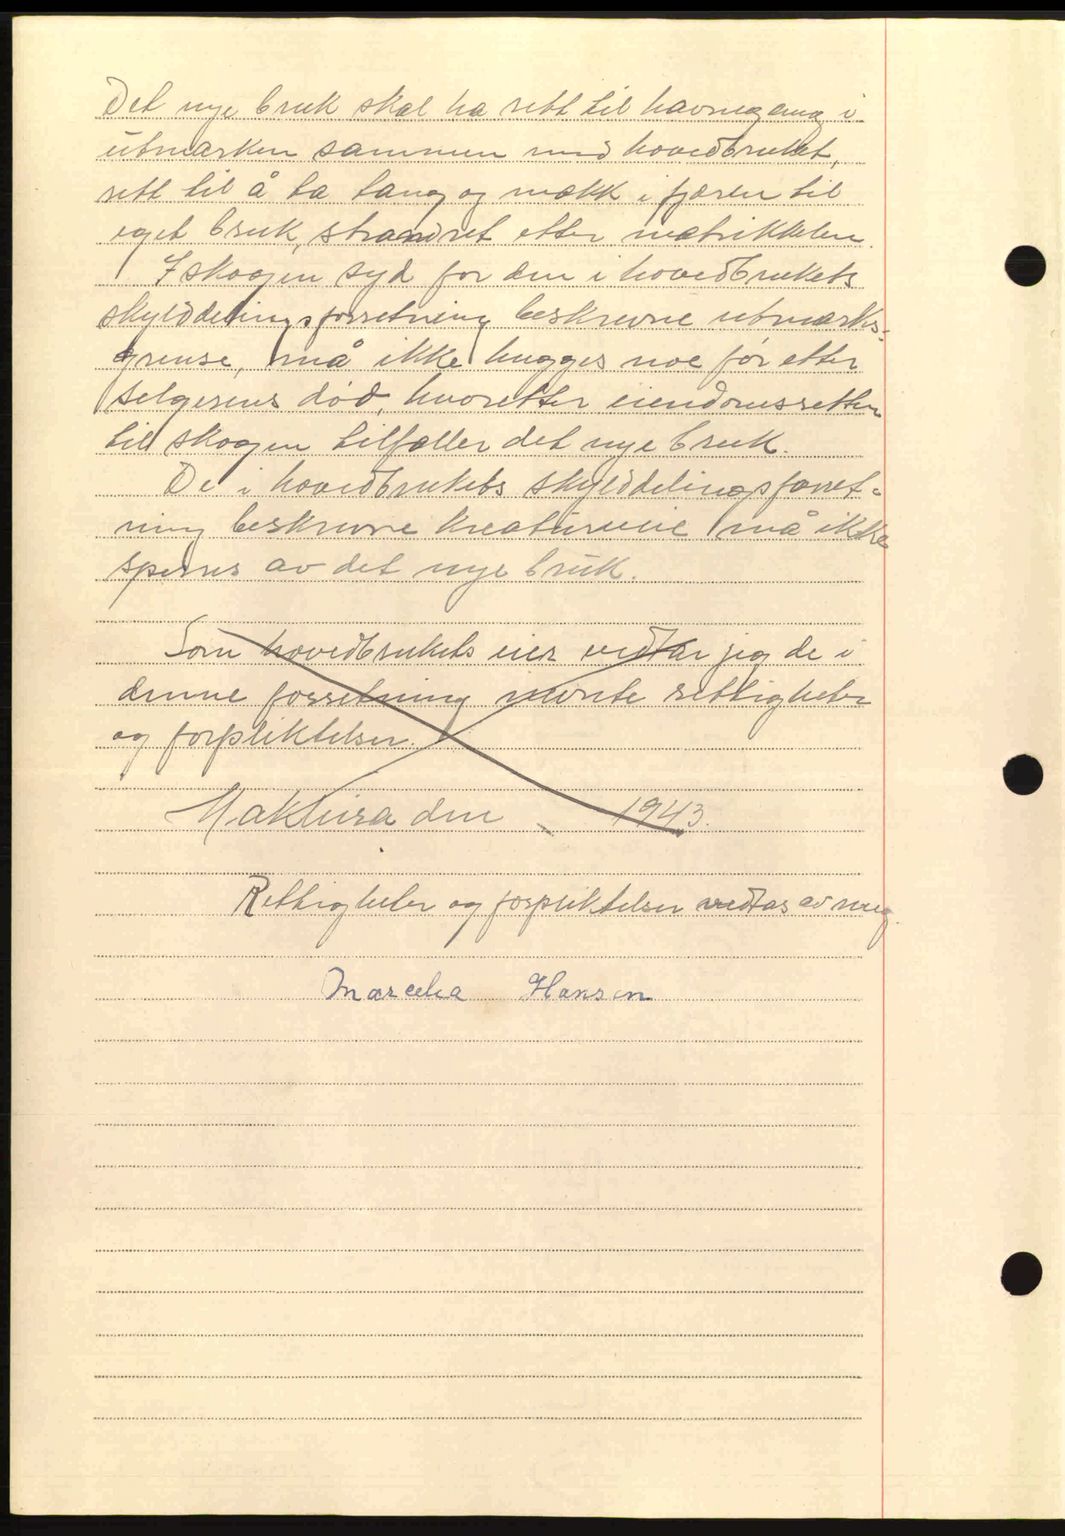 Det nye bruk skal ha rett til havnegang i
utmarken sammen med hovedbruket,
rett til å ta tang og makk i fjæren til
eget bruk, strandret etter matrikkelen.
I skogen syd for den i hovedbrukets
skylddelingsforretning beskrevne utmarks-
grense, må ikke hugges noe før etter
selgerens død, hvoretter eiendomsretten
til skogen tilfaller det nye bruk.
De i hovedbrukets skylddelingsforret-
ning beskrevne kreaturveie må ikke
sperres av det nye bruk.
Som hovedbrukets eier vedtar jeg de i
denne forretning nevnte rettigheter
og forpliktelser.
den 1943.
Rettigheter og forpliktelser vedtas av meg.
Marcelia Hansen